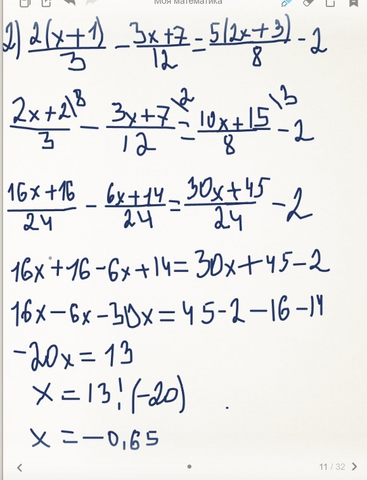 Моя математика
2) 2(x+1)/3 - 3x+7/12 = 5(2x+3)/8 - 2
2x+2\8/3 - 3x+7\2/12 = 10x+15\3/8 - 2
16x+16/24 - 6x+14/24 = 30x+45/24 - 2
16x+16-6x+14=30x+45-2
16x-6x-30x=45-2-16-14
-20x=13
x=13:(-20)
x=-0,65
11 / 32